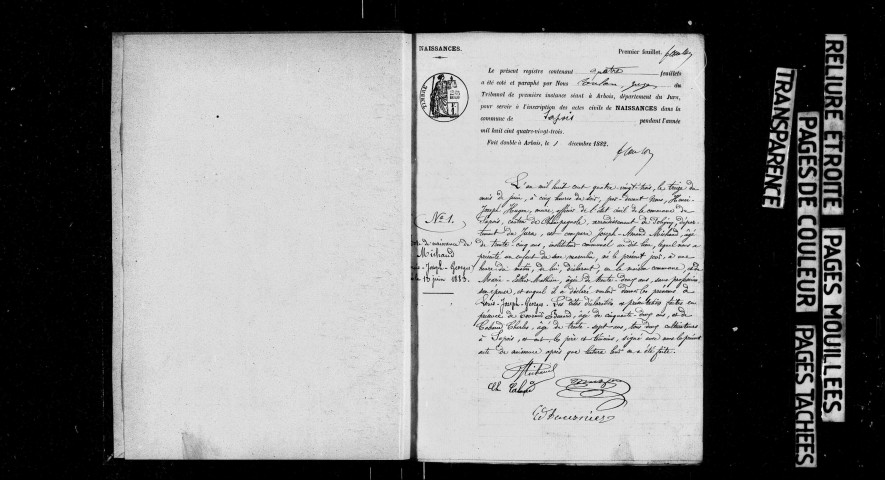 NAISSANCES.
Premier feuillet.
Le présent registre contenant quatre feuillets
a été coté et paraphé par Nous juge du
Tribunal de première instance séant à Arbois, département du Jura,
pour servir à l'inscription des actes civils de NAISSANCES dans la
commune de Sapois pendant l'année
mil huit cent quatre-vingt-trois.
Fait double à Arbois, le 1 décembre 1882.
L'an mil huit cent quatre vingt trois, le treize du
mois de juin, à cinq heures du soir, par devant Nous, Henri-
Joseph maire, officier de l'état civil de la commune de
Sapois, canton de Champagnole, arrondissement de Poligny, dépar-
tement du Jura, est comparu Joseph-Amand Michaud, âgé
de trente cinq ans, instituteur communal au dit lieu, lequel nous a
présenté un enfant du sexe masculin, né le présent jour, à une
heure du matin, de lui déclarant, en la maison commune, et de
Marie- âgée de trente-deux ans, sans profession
son épouse, et auquel il a déclaré vouloir donner les prénoms de
Louis-Joseph-Georges. Les dites déclaration et présentation faites en
présence de âgé de cinquante-deux ans, et de
Charles, âgé de trente-sept ans, tous deux cultivateurs
à Sapois, et ont le père et témoins, signé avec nous le présent
acte de naissance après que lecture leur en a été faite.
No 1.
de naissance de
Michaud
-Joseph-Georges
le 13 juin 1883.
Michaud
Ed Fournier
RELIURE ÉTROITE PAGES MOUILLÉES
PAGES DE COULEUR PAGES TACHÉES
TRANSPARENCE